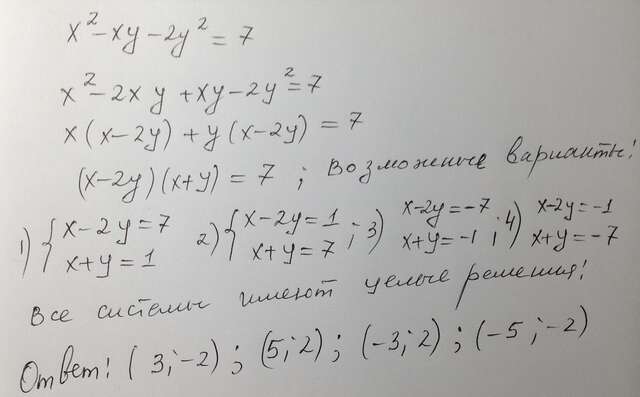 x² - xy - 2y² = 7
x² - 2xy + xy - 2y² = 7
x(x - 2y) + y(x - 2y) = 7
(x - 2y)(x + y) = 7 ; Возможные варианты!
1) { x - 2y = 7 2) { x - 2y = 1 ; 3) x - 2y = -7 ; 4) x - 2y = -1
x + y = 1 x + y = 7 x + y = -1 x + y = -7
Все системы имеют целые решения!
Ответ! (3; -2) ; (5; 2) ; (-3; 2) ; (-5; -2)